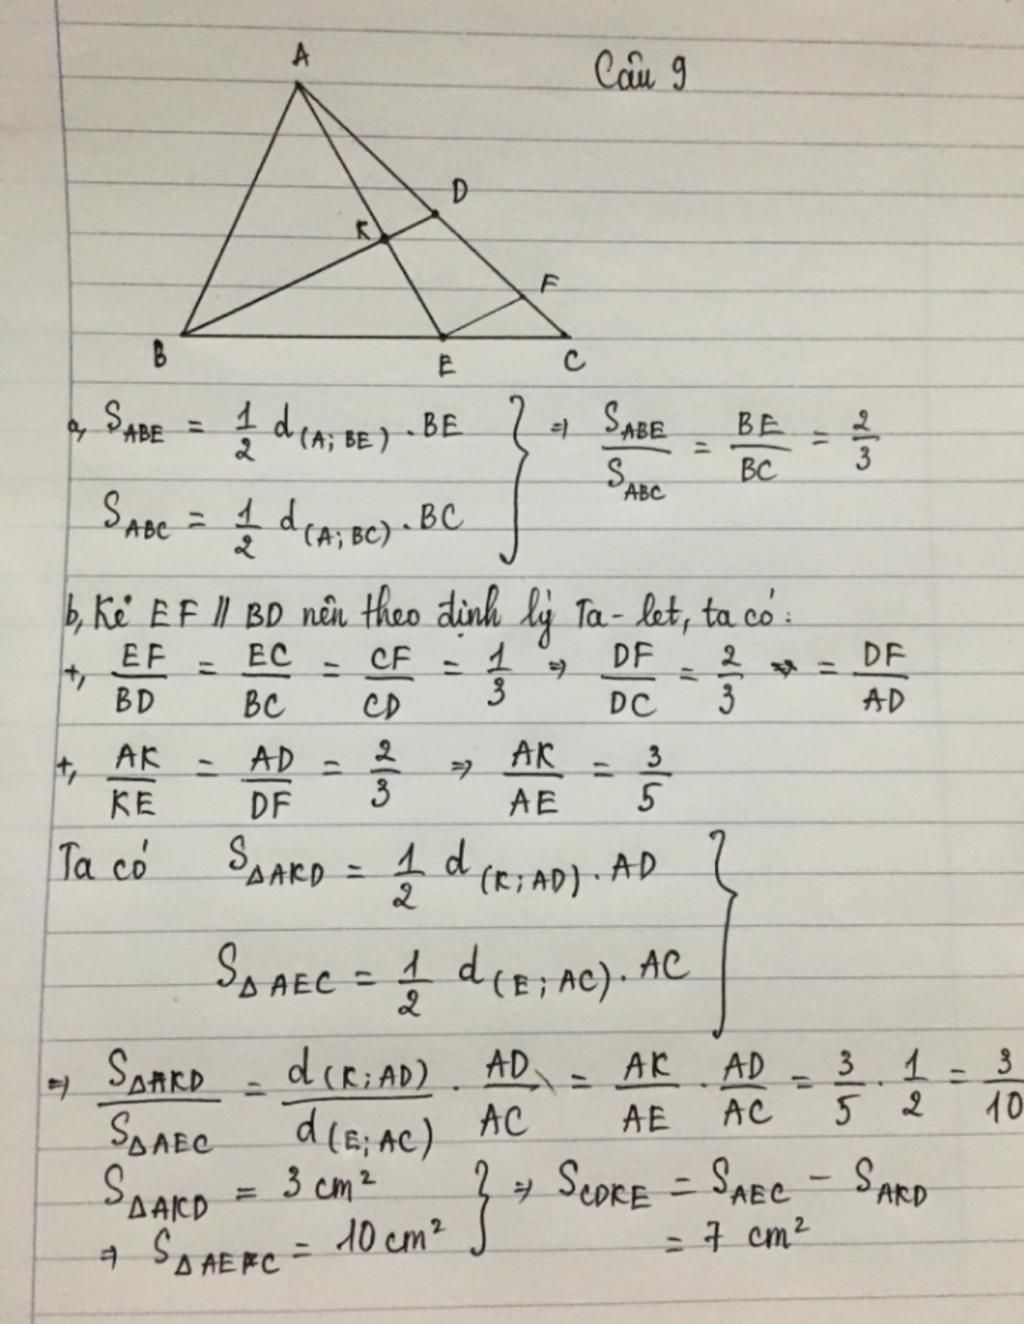 Câu 9
A
D
K
F
B
E
C
a, S_ABE = 1/2 d(A; BE) . BE } => S_ABE/S_ABC = BE/BC = 2/3
S_ABC = 1/2 d(A; BC) . BC
b, Kẻ EF // BD nên theo định lý Ta-let, ta có:
+, EF/BD = EC/BC = CF/CD = 1/3 => DF/DC = 2/3 = DF/AD
+, AK/KE = AD/DF = 2/3 => AK/AE = 3/5
Ta có S_ΔAKD = 1/2 d(K; AD) . AD }
S_ΔAEC = 1/2 d(E; AC) . AC
=> S_ΔAKD/S_ΔAEC = d(K; AD)/d(E; AC) . AD/AC = AK/AE . AD/AC = 3/5 . 1/2 = 3/10
S_ΔAKD = 3 cm² } => S_CDKE = S_AEC - S_AKD
=> S_ΔAEC = 10 cm² = 7 cm²